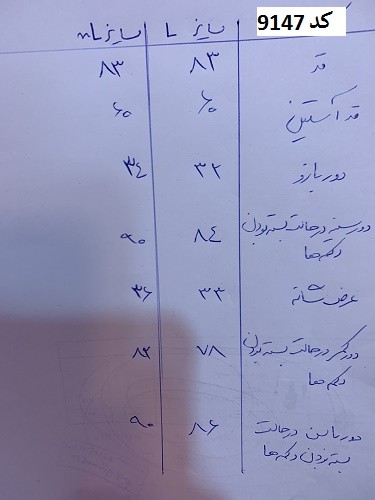 کد 9147
سایز L سایز XL
قد ۸۳ ۸۳
قد آستین ۶۰ ۶۰
دور بازو ۳۲ ۳۴
دور سینه در حالت بسته بودن
دکمه ها ۸۴ ۹۰
عرض شانه ۳۳ ۳۶
دور کمر در حالت بسته بودن
دکمه ها ۷۸ ۸۲
دور باسن در حالت
بسته بودن دکمه ها ۸۶ ۹۰